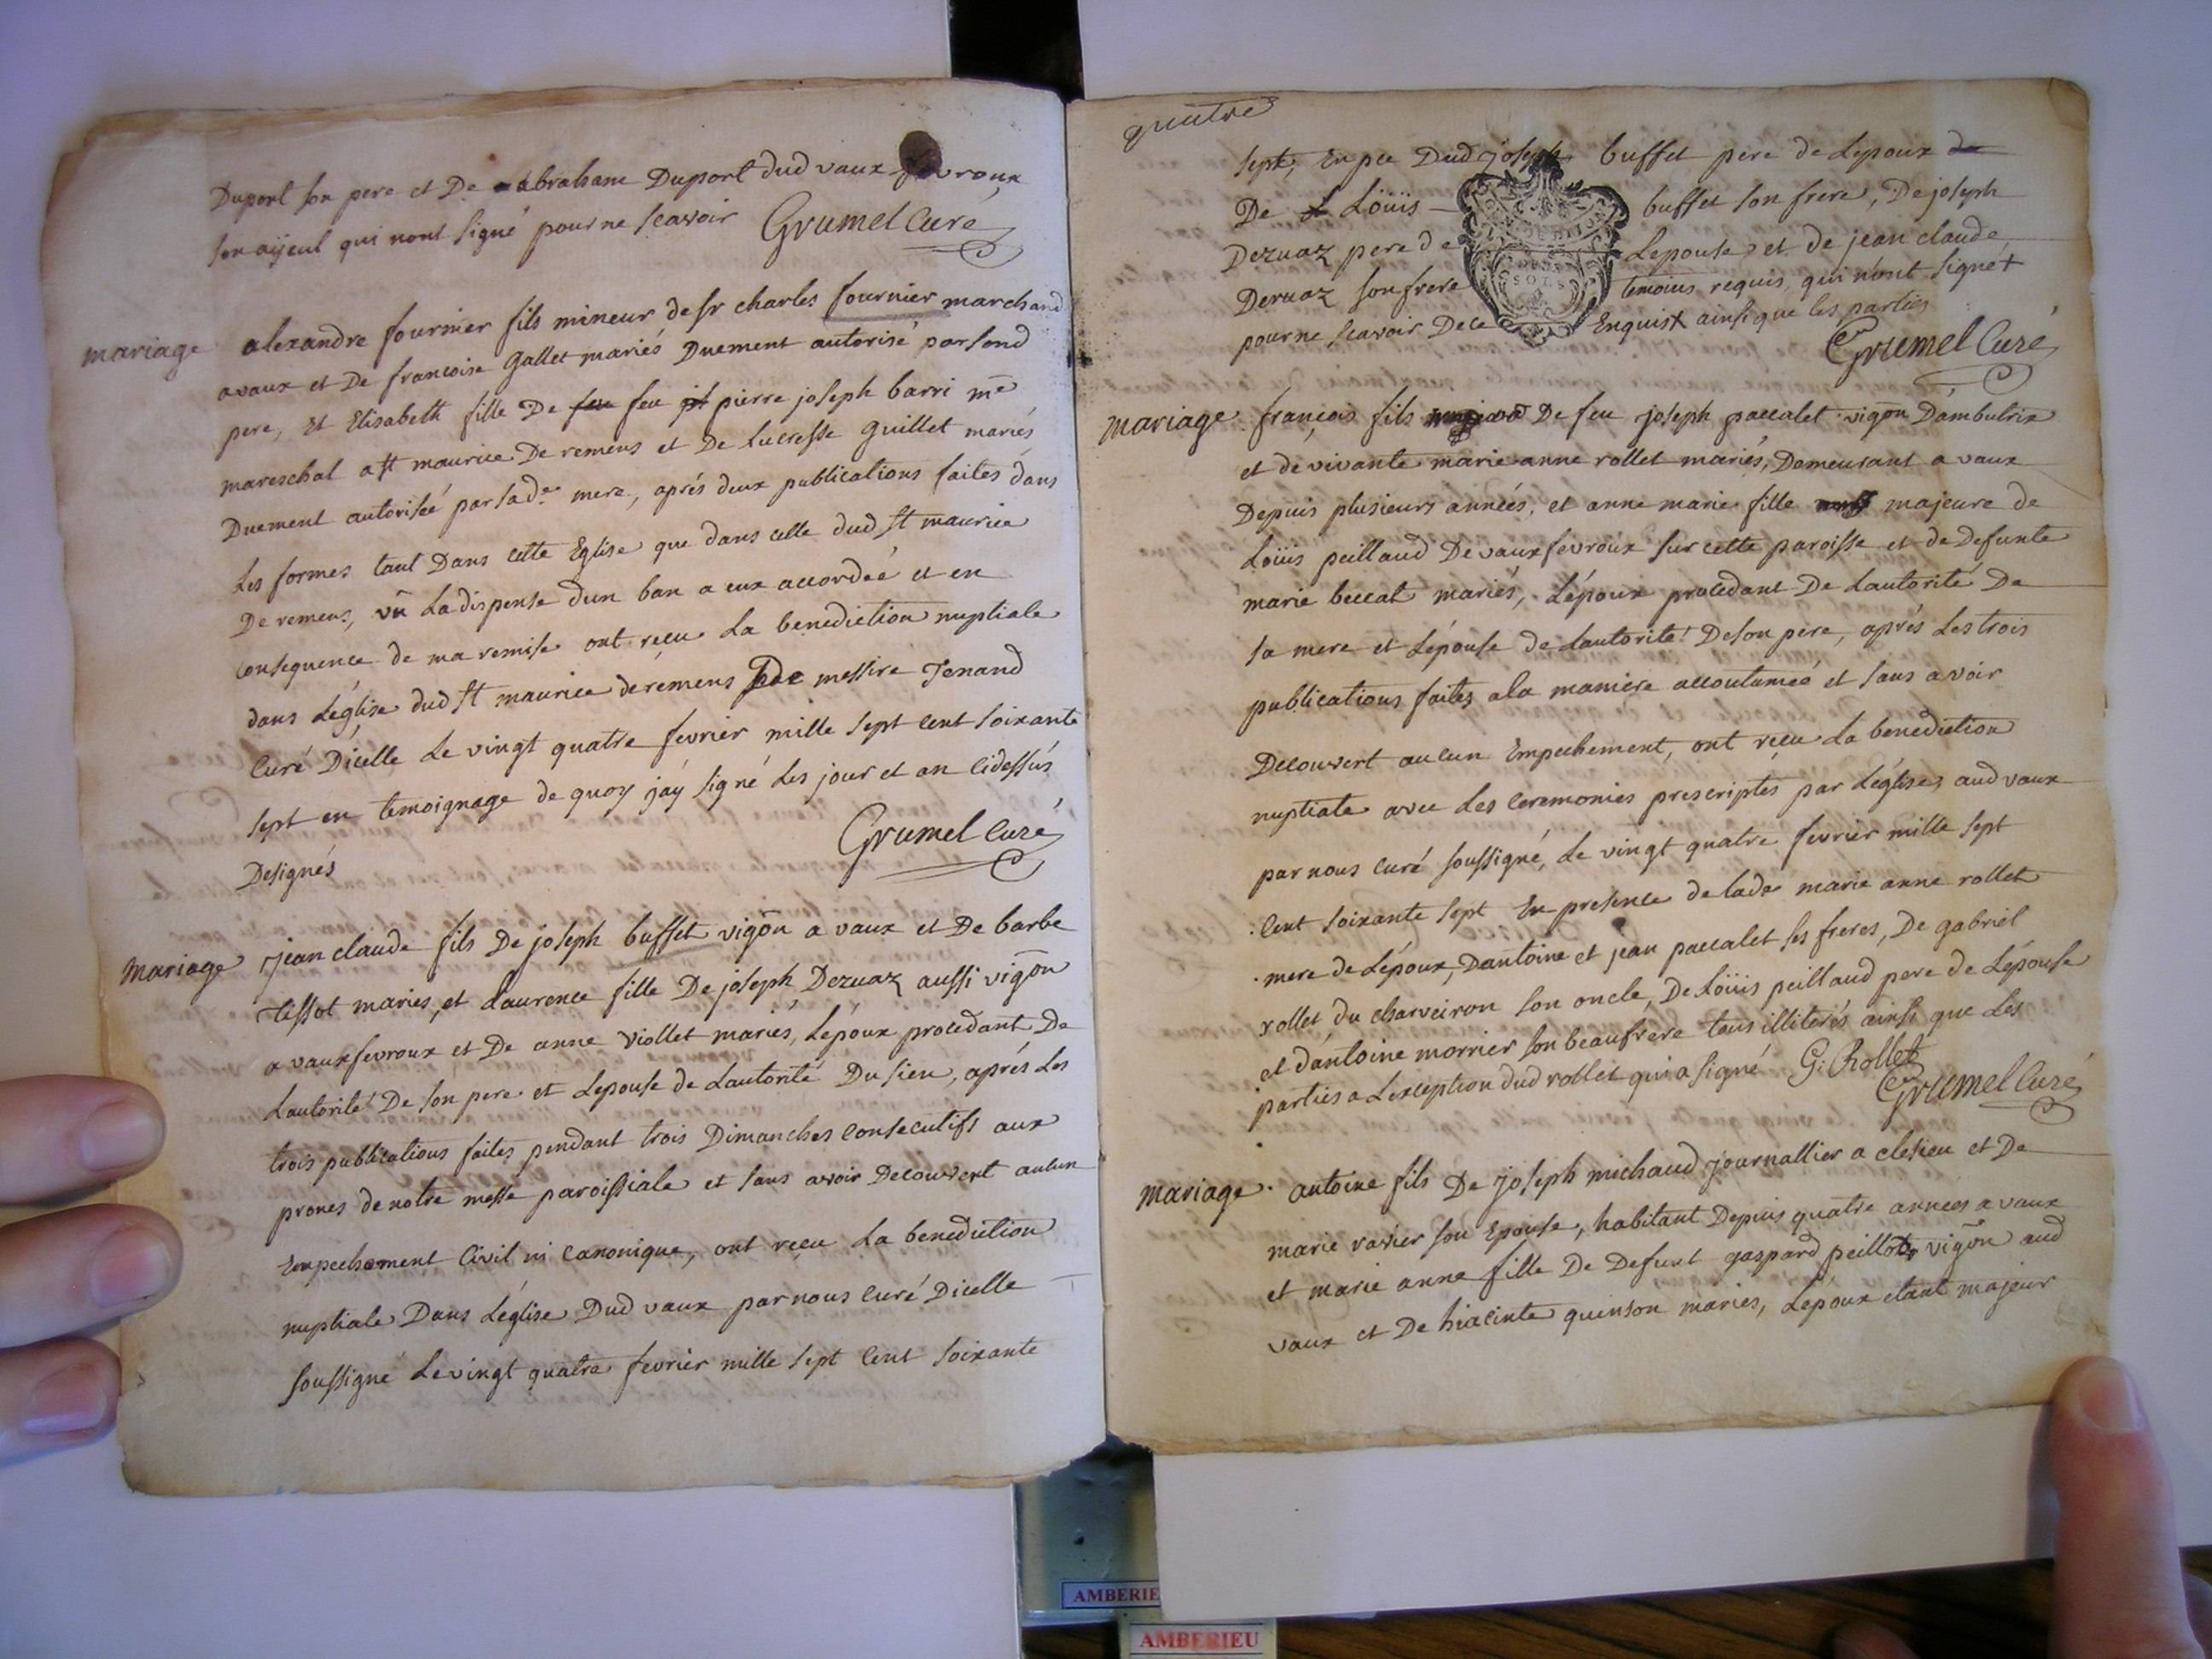 Duport son pere et De abraham Duport dud vaux fevroux
son aÿeul qui nont signé pour ne scavoir Grumel Curé
mariage alexandre fournier fils mineur de sr charles fournier marchand
a vaux et De francoise Gallet mariés Duement autorisé par sond
pere, Et Elisabeth fille De feu feu pierre joseph barri me
mareschal a st maurice De remens et De Lucresse Guillet mariés
Duement autorisée par sade mere, aprés deux publications faites dans
Les formes tant Dans cette Eglise que dans celle dud st maurice
De remens, vû La dispense dun ban a eux accordée et en
consequence de ma remise ont reçu La benediction nuptiale
dans L'église dud st maurice de remens par messire Tenand
Curé Dicelle Le vingt quatre fevrier mille sept cent soixante
sept en temoignage de quoy j'aÿ signé Les jour et an cidessus
Designés Grumel Curé
mariage jean claude fils De joseph buffet vigōn a vaux et De barbe
tissot maries, et Laurence fille De joseph Dezuaz aussi vigōn
a vaux fevroux et De anne Viollet mariés, L'époux procedant De
L'autorité De son pere et Lepouse de Lautorité Du sien, aprés Les
trois publications faites pendant trois Dimanches consecutifs aux
prones de notre messe paroissiale et sans avoir Decouvert aucun
Empechement Civil ni canonique, ont reçu La benediction
nuptiale Dans L'église Dud vaux par nous curé Dicelle
soussigné Le vingt quatre fevrier mille sept cent soixante
quatre
sept, En pce Dud joseph buffet pere de Lepoux
De Loüis buffet son frere, De joseph
Dezuaz pere de Lepouse et de jean claude
Dezuaz son frere temoins requis, qui n'ont signé +
pour ne scavoir De ce Enquis + ainsi que les parties
Grumel Curé
mariage françois fils De feu joseph paccalet vigōn D'ambutrix
et de vivante marie anne rollet mariés, Demeurant a vaux
Depuis plusieurs années, et anne marie fille majeure de
Loüis peillaud De vaux fevroux sur cette paroisse et de Defunte
marie beccat mariés, L'époux procedant De L'autorité De
sa mere et L'épouse de L'autorité De son pere, aprés Les trois
publications faites a la maniere accoutumée et sans avoir
Decouvert aucun Empechement, ont reçu La benediction
nuptiale avec Les ceremonies prescriptes par L'église, aud vaux
par nous curé soussigné, Le vingt quatre fevrier mille sept
cent soixante sept En presence de lade marie anne rollet
mere de L'époux, D'antoine et jean paccalet ses freres, De gabriel
rollet du charveiron son oncle, De Loüis peillaud pere de L'épouse
et d'antoine morrier son beaufrere tous illiterés ainsi que Les
parties a L'exception dud rollet qui a signé G: Rollet
Grumel Curé
mariage antoine fils De joseph michaud journallier a cleseu et De
marie ravier son Epouse, habitant Depuis quatre années a vaux
et marie anne fille De Defunt gaspard peillot vigōn aud
vaux et De hiacinte quinson maries, Lépoux etant majeur
AMBERIE
AMBERIEU